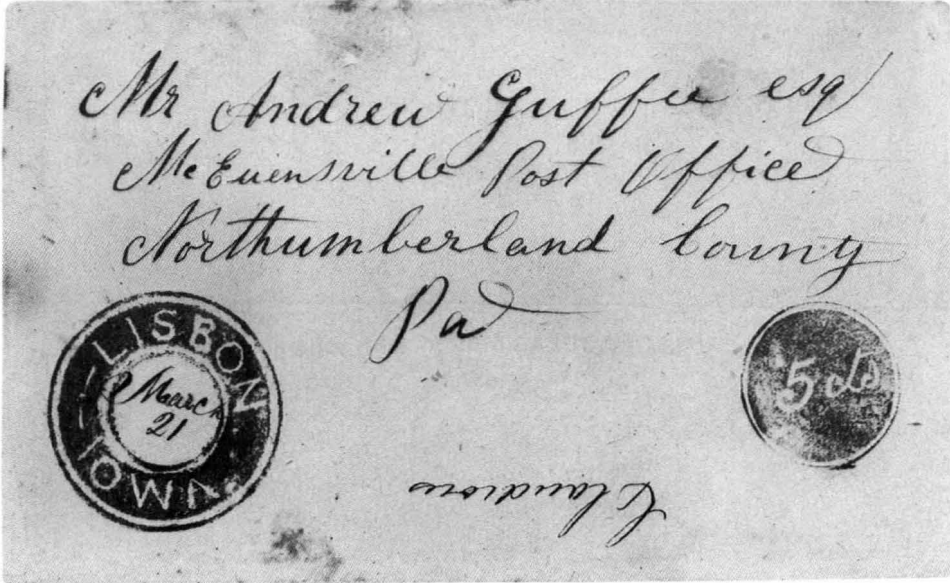 Mr Andrew Guffee esq
McEuensville Post Office
Northumberland County
Pa
LISBON
March
21
IOWA.
5 cts